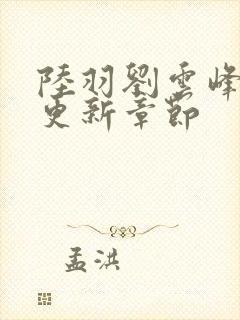 陸羽劉雲峰
更新章節
孟洪